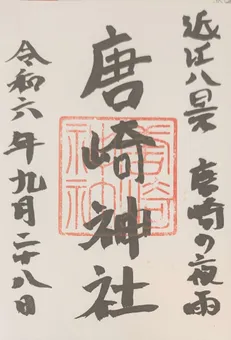 近江八景 唐崎の夜雨
唐崎神社
唐崎神社
令和六年九月二十八日